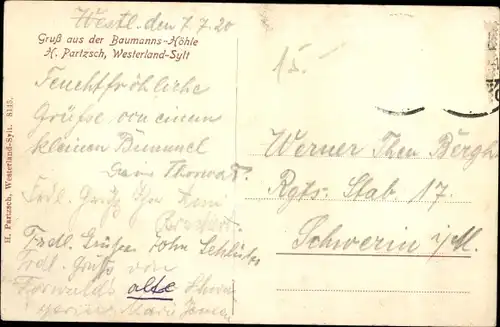 Westl. den 7.7.20
Gruß aus der Baumanns-Höhle
H. Partzsch, Westerland-Sylt
Feuchtfröhliche
Grüße von einem
kleinen Bummel
Frdl. Gruß
Frdl. Grüße John Schlüter
Frdl. Gruß von
alte
H. Partzsch, Westerland-Sylt. 8145.
15.-
Werner Theu Bergh
Rgts. Stab 17.
Schwerin i/M.